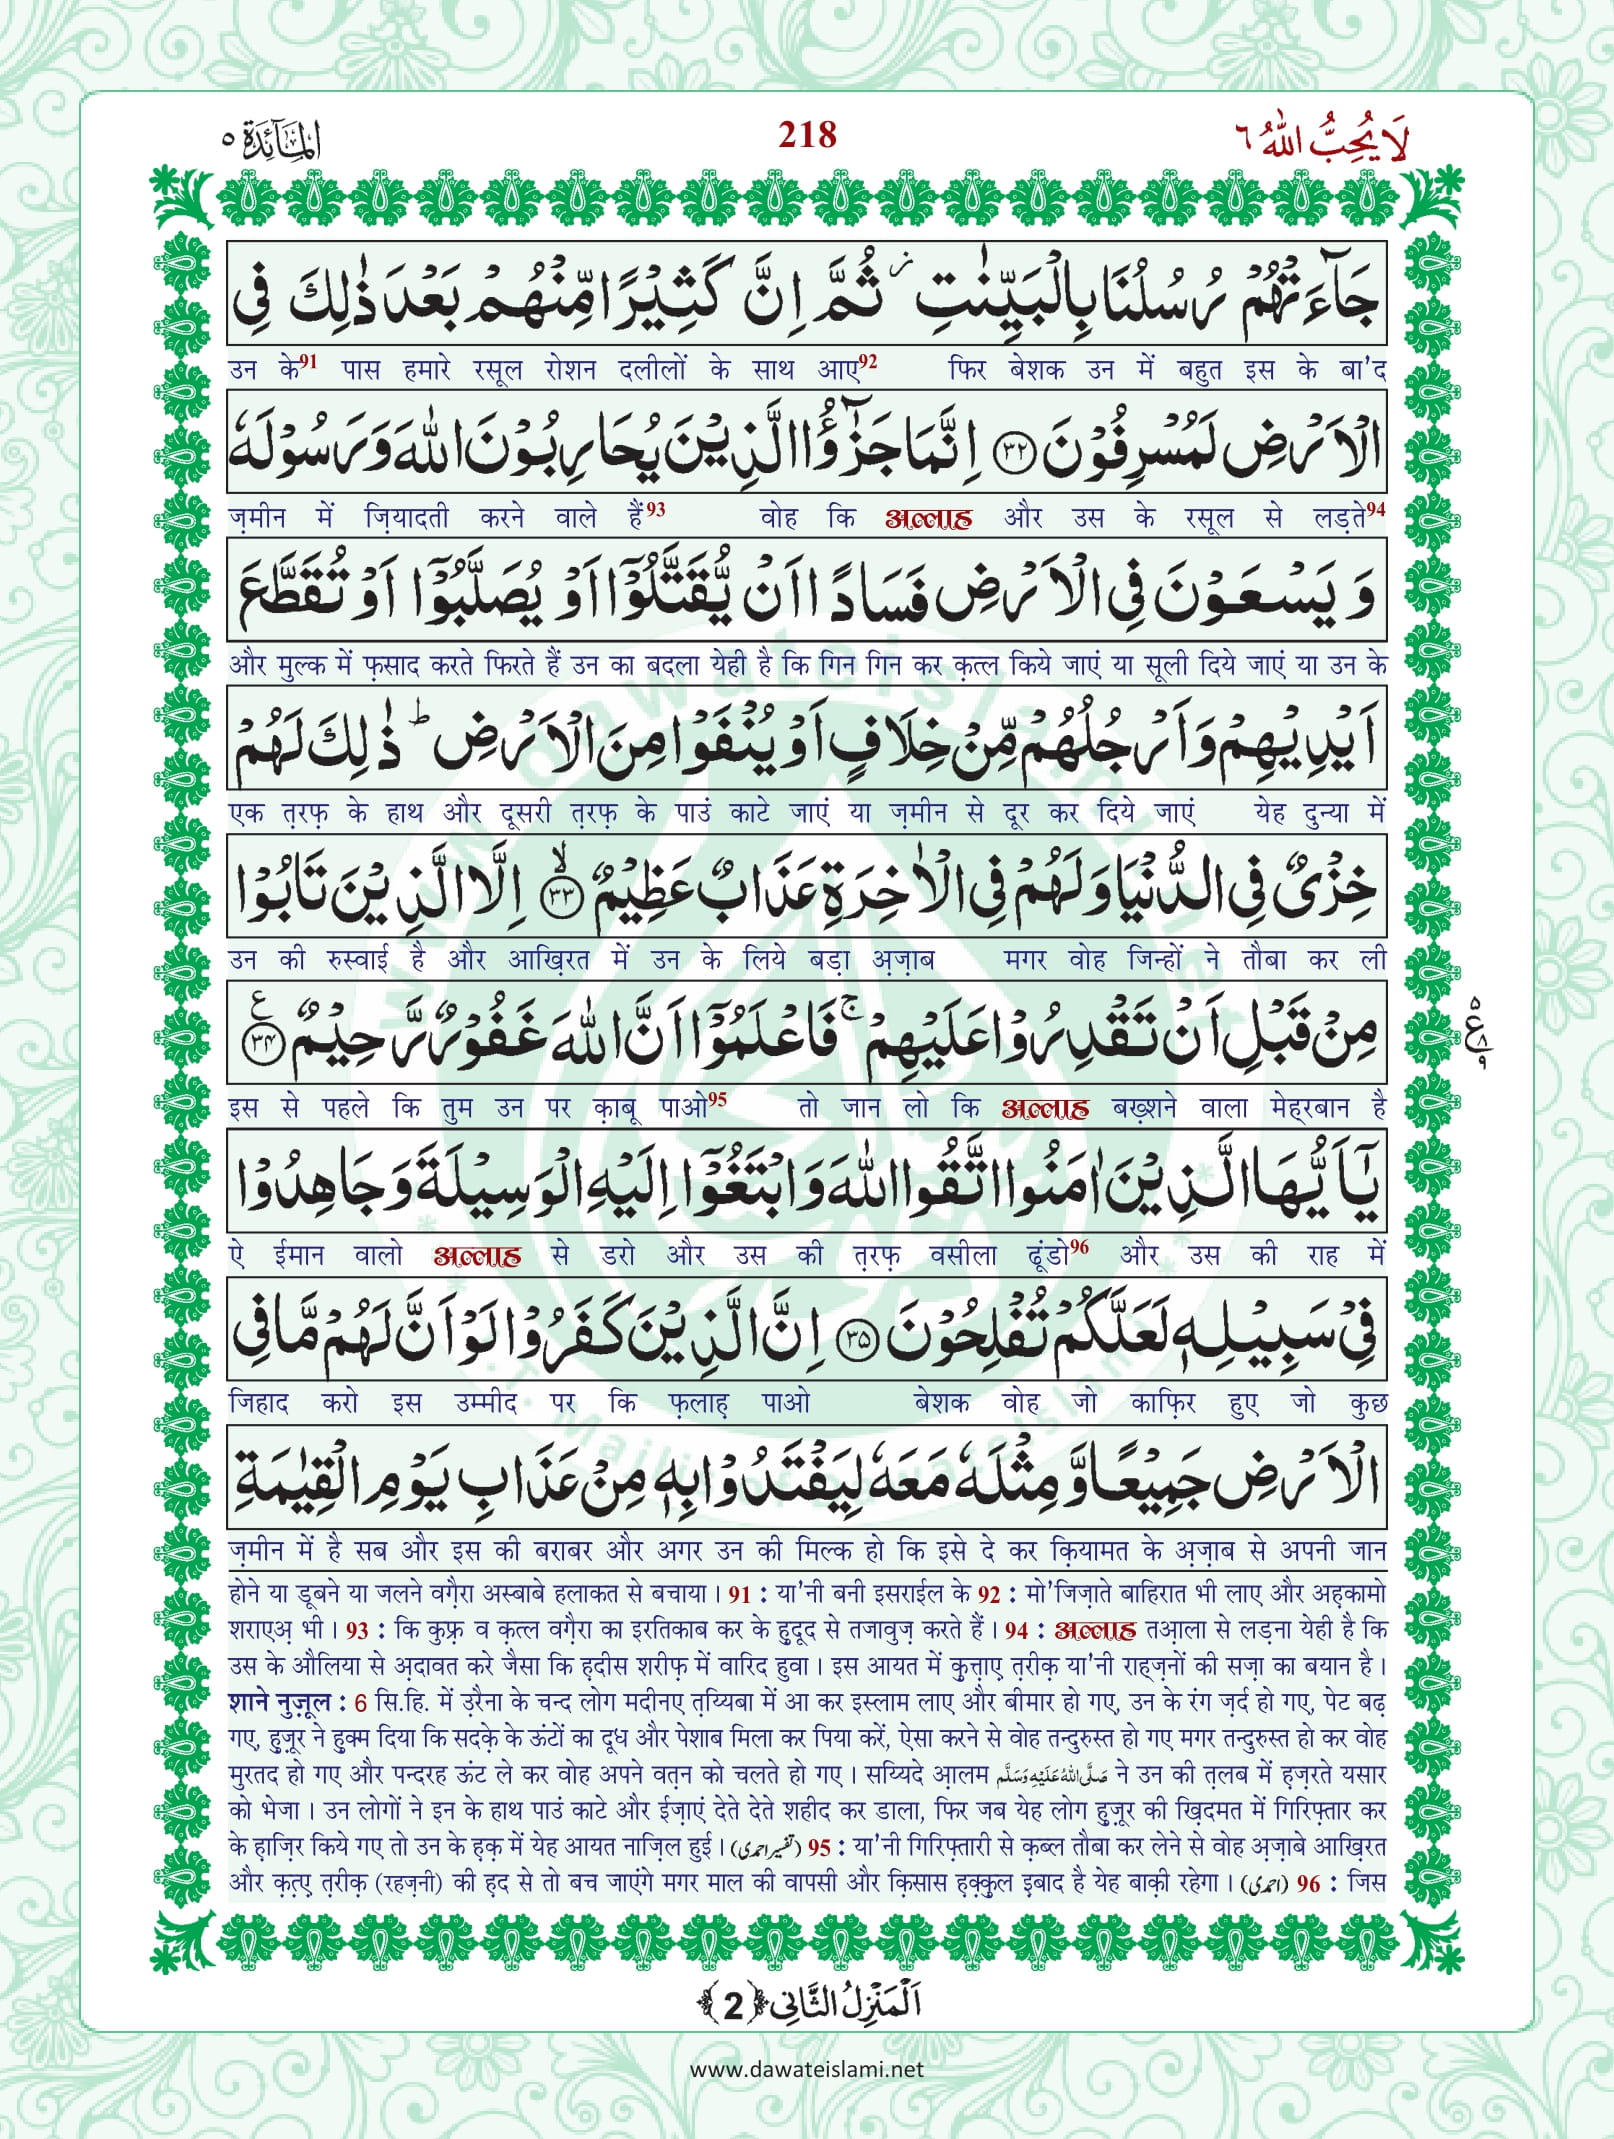 المآئدة ٥
218
لَا يُحِبُّ اللهُ ٦
جَآءَتْهُمْ رُسُلُنَا بِالْبَيِّنٰتِ ۫ ثُمَّ اِنَّ كَثِيْرًا مِّنْهُمْ بَعْدَ ذٰلِكَ فِى
उन के91 पास हमारे रसूल रोशन दलीलों के साथ आए92 फिर बेशक उन में बहुत इस के बा'द
الْاَرْضِ لَمُسْرِفُوْنَ ﴿۳۲﴾ اِنَّمَا جَزٰٓؤُا الَّذِيْنَ يُحَارِبُوْنَ اللهَ وَرَسُوْلَهٗ
ज़मीन में ज़ियादती करने वाले हैं93 वोह कि अल्लाह और उस के रसूल से लड़ते94
وَ يَسْعَوْنَ فِى الْاَرْضِ فَسَادًا اَنْ يُّقَتَّلُوْٓا اَوْ يُصَلَّبُوْٓا اَوْ تُقَطَّعَ
और मुल्क में फ़साद करते फिरते हैं उन का बदला येही है कि गिन गिन कर क़त्ल किये जाएं या सूली दिये जाएं या उन के
اَيْدِيْهِمْ وَاَرْجُلُهُمْ مِّنْ خِلَافٍ اَوْ يُنْفَوْا مِنَ الْاَرْضِ ؕ ذٰلِكَ لَهُمْ
एक त़रफ़ के हाथ और दूसरी त़रफ़ के पाउं काटे जाएं या ज़मीन से दूर कर दिये जाएं येह दुन्या में
خِزْىٌ فِى الدُّنْيَا وَلَهُمْ فِى الْاٰخِرَةِ عَذَابٌ عَظِيْمٌ ﴿ۙ۳۳﴾ اِلَّا الَّذِيْنَ تَابُوْا
उन की रुस्वाई है और आख़िरत में उन के लिये बड़ा अ़ज़ाब मगर वोह जिन्हों ने तौबा कर ली
مِنْ قَبْلِ اَنْ تَقْدِرُوْا عَلَيْهِمْ ۚ فَاعْلَمُوْٓا اَنَّ اللهَ غَفُوْرٌ رَّحِيْمٌ ﴿۳۴﴾ع
٥ ع ٨ ٩
इस से पहले कि तुम उन पर क़ाबू पाओ95 तो जान लो कि अल्लाह बख़्शने वाला मेह्रबान है
يٰٓاَيُّهَا الَّذِيْنَ اٰمَنُوا اتَّقُوا اللهَ وَابْتَغُوْٓا اِلَيْهِ الْوَسِيْلَةَ وَجَاهِدُوْا
ऐ ईमान वालो अल्लाह से डरो और उस की त़रफ़ वसीला ढूंडो96 और उस की राह में
فِىْ سَبِيْلِهٖ لَعَلَّكُمْ تُفْلِحُوْنَ ﴿۳۵﴾ اِنَّ الَّذِيْنَ كَفَرُوْا لَوْ اَنَّ لَهُمْ مَّا فِى
जिहाद करो इस उम्मीद पर कि फ़लाह़ पाओ बेशक वोह जो काफ़िर हुए जो कुछ
الْاَرْضِ جَمِيْعًا وَّ مِثْلَهٗ مَعَهٗ لِيَفْتَدُوْا بِهٖ مِنْ عَذَابِ يَوْمِ الْقِيٰمَةِ
ज़मीन में है सब और इस की बराबर और अगर उन की मिल्क हो कि इसे दे कर क़ियामत के अ़ज़ाब से अपनी जान
होने या डूबने या जलने वग़ैरा अस्बाबे हलाकत से बचाया। 91 : या'नी बनी इसराईल के 92 : मो'जिज़ाते बाहिरात भी लाए और अह़कामो
शराएअ़ भी। 93 : कि कुफ़्र व क़त्ल वग़ैरा का इरतिकाब कर के हुदूद से तजावुज़ करते हैं। 94 : अल्लाह तआ़ला से लड़ना येही है कि
उस के औलिया से अ़दावत करे जैसा कि ह़दीस शरीफ़ में वारिद हुवा। इस आयत में क़ुत्ताए़ त़रीक़ या'नी राहज़नों की सज़ा का बयान है।
शाने नुज़ूल : 6 सि.हि. में उ़रैना के चन्द लोग मदीनए त़य्यिबा में आ कर इस्लाम लाए और बीमार हो गए, उन के रंग ज़र्द हो गए, पेट बढ़
गए, हु़ज़ूर ने हु़क्म दिया कि सदक़े के ऊंटों का दूध और पेशाब मिला कर पिया करें, ऐसा करने से वोह तन्दुरुस्त हो गए मगर तन्दुरुस्त हो कर वोह
मुरतद हो गए और पन्दरह ऊंट ले कर वोह अपने वत़न को चलते हो गए। सय्यिदे आ़लम صَلَّى اللهُ عَلَيْهِ وَسَلَّم ने उन की त़लब में ह़ज़रते यसार
को भेजा। उन लोगों ने इन के हाथ पाउं काटे और ईज़ाएं देते देते शहीद कर डाला, फिर जब येह लोग हु़ज़ूर की ख़िदमत में गिरिफ़्तार कर
के ह़ाज़िर किये गए तो उन के ह़क़ में येह आयत नाज़िल हुई। (تفسیر احمدی) 95 : या'नी गिरिफ़्तारी से क़ब्ल तौबा कर लेने से वोह अ़ज़ाबे आख़िरत
और क़त़्ए़ त़रीक़ (रहज़नी) की ह़द से तो बच जाएंगे मगर माल की वापसी और क़िसास ह़क़्क़ुल इबाद है येह बाक़ी रहेगा। (احمدی) 96 : जिस
اَلْمَنْزِلُ الثَّانِى ﴿2﴾
www.dawateislami.net